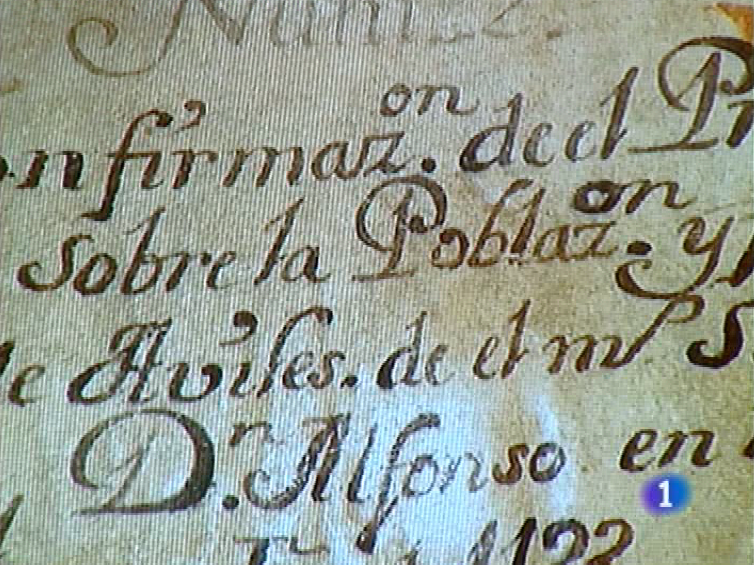 Num.
onfirmaz.on de el Pr
sobre la Poblaz.on y
de Aviles. de el m S
D.n Alfonso en
1